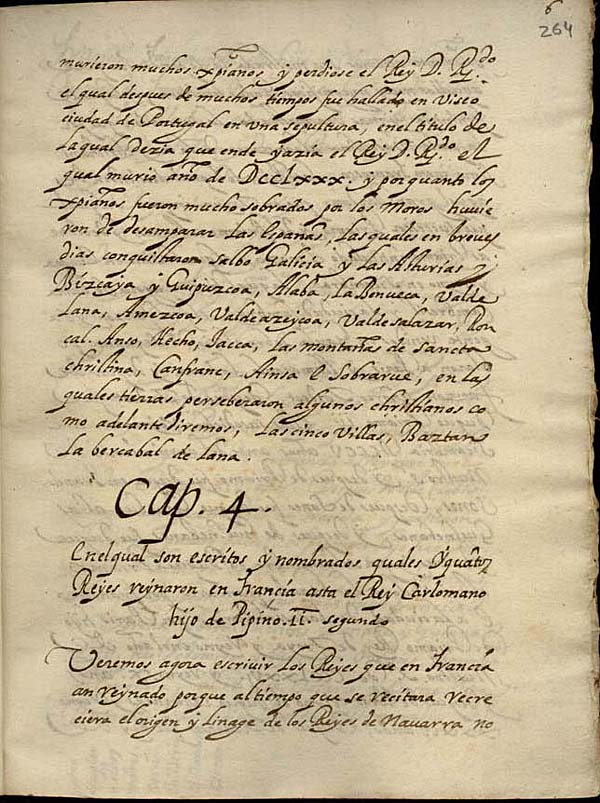 6
264
murieron muchos xpianos y perdiose el Rey D. Rdo.
el qual despues de muchos tiempos fue hallado en Viseo
ciudad de Portugal en vna sepultura, en el titulo de
la qual dezia que ende yazia el Rey D. Rdo. el
qual murio año de Dcclxxx. y por quanto los
xpianos fueron mucho sobrados por los Moros huuie
ron de desamparar las Españas, las quales en breues
dias conquistaron salbo Galicia y las Asturias y
Bizcaya y Guipuzcoa, Alaba, la Borueca, Valde
lana, Amezcoa, Valdeazeycoa, Valdesalazar, Ron
cal. Anso, Hecho, Iacca, las montañas de sancta
christina, Canfranc, Ainsa e Sobrarue, en las
quales tierras perseberaron algunos christianos co
mo adelante diremos, las cinco villas, Baztan
la bercabal de lana.
Cap. 4.
Enel qual son escritos y nombrados quales y quātoz
Reyes reynaron en francia asta el Rey Carlomano
hijo de Pipino. II. segundo
Veremos agora escrivir los Reyes que en francia
an reynado porque al tiempo que se recitara recre
ciera el origen y linage de los Reyes de Navarra no